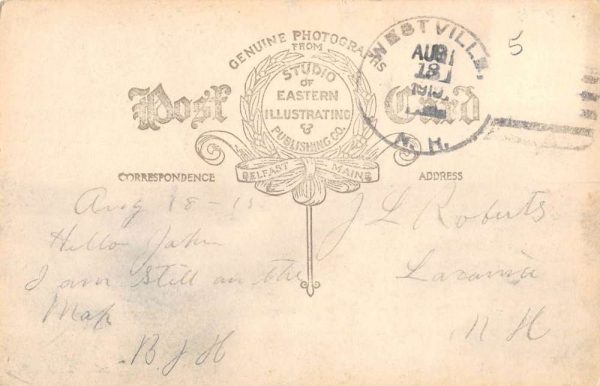 GENUINE PHOTOGRAPHS
FROM
STUDIO
OF
EASTERN
ILLUSTRATING
&
PUBLISHING CO.
BELFAST MAINE
Post Card
WESTVILLE,
AUG
18
N. H.
5
CORRESPONDENCE
ADDRESS
Aug 18-15
Hello John
I am still on the
Map
B J H
J L Roberts
N H